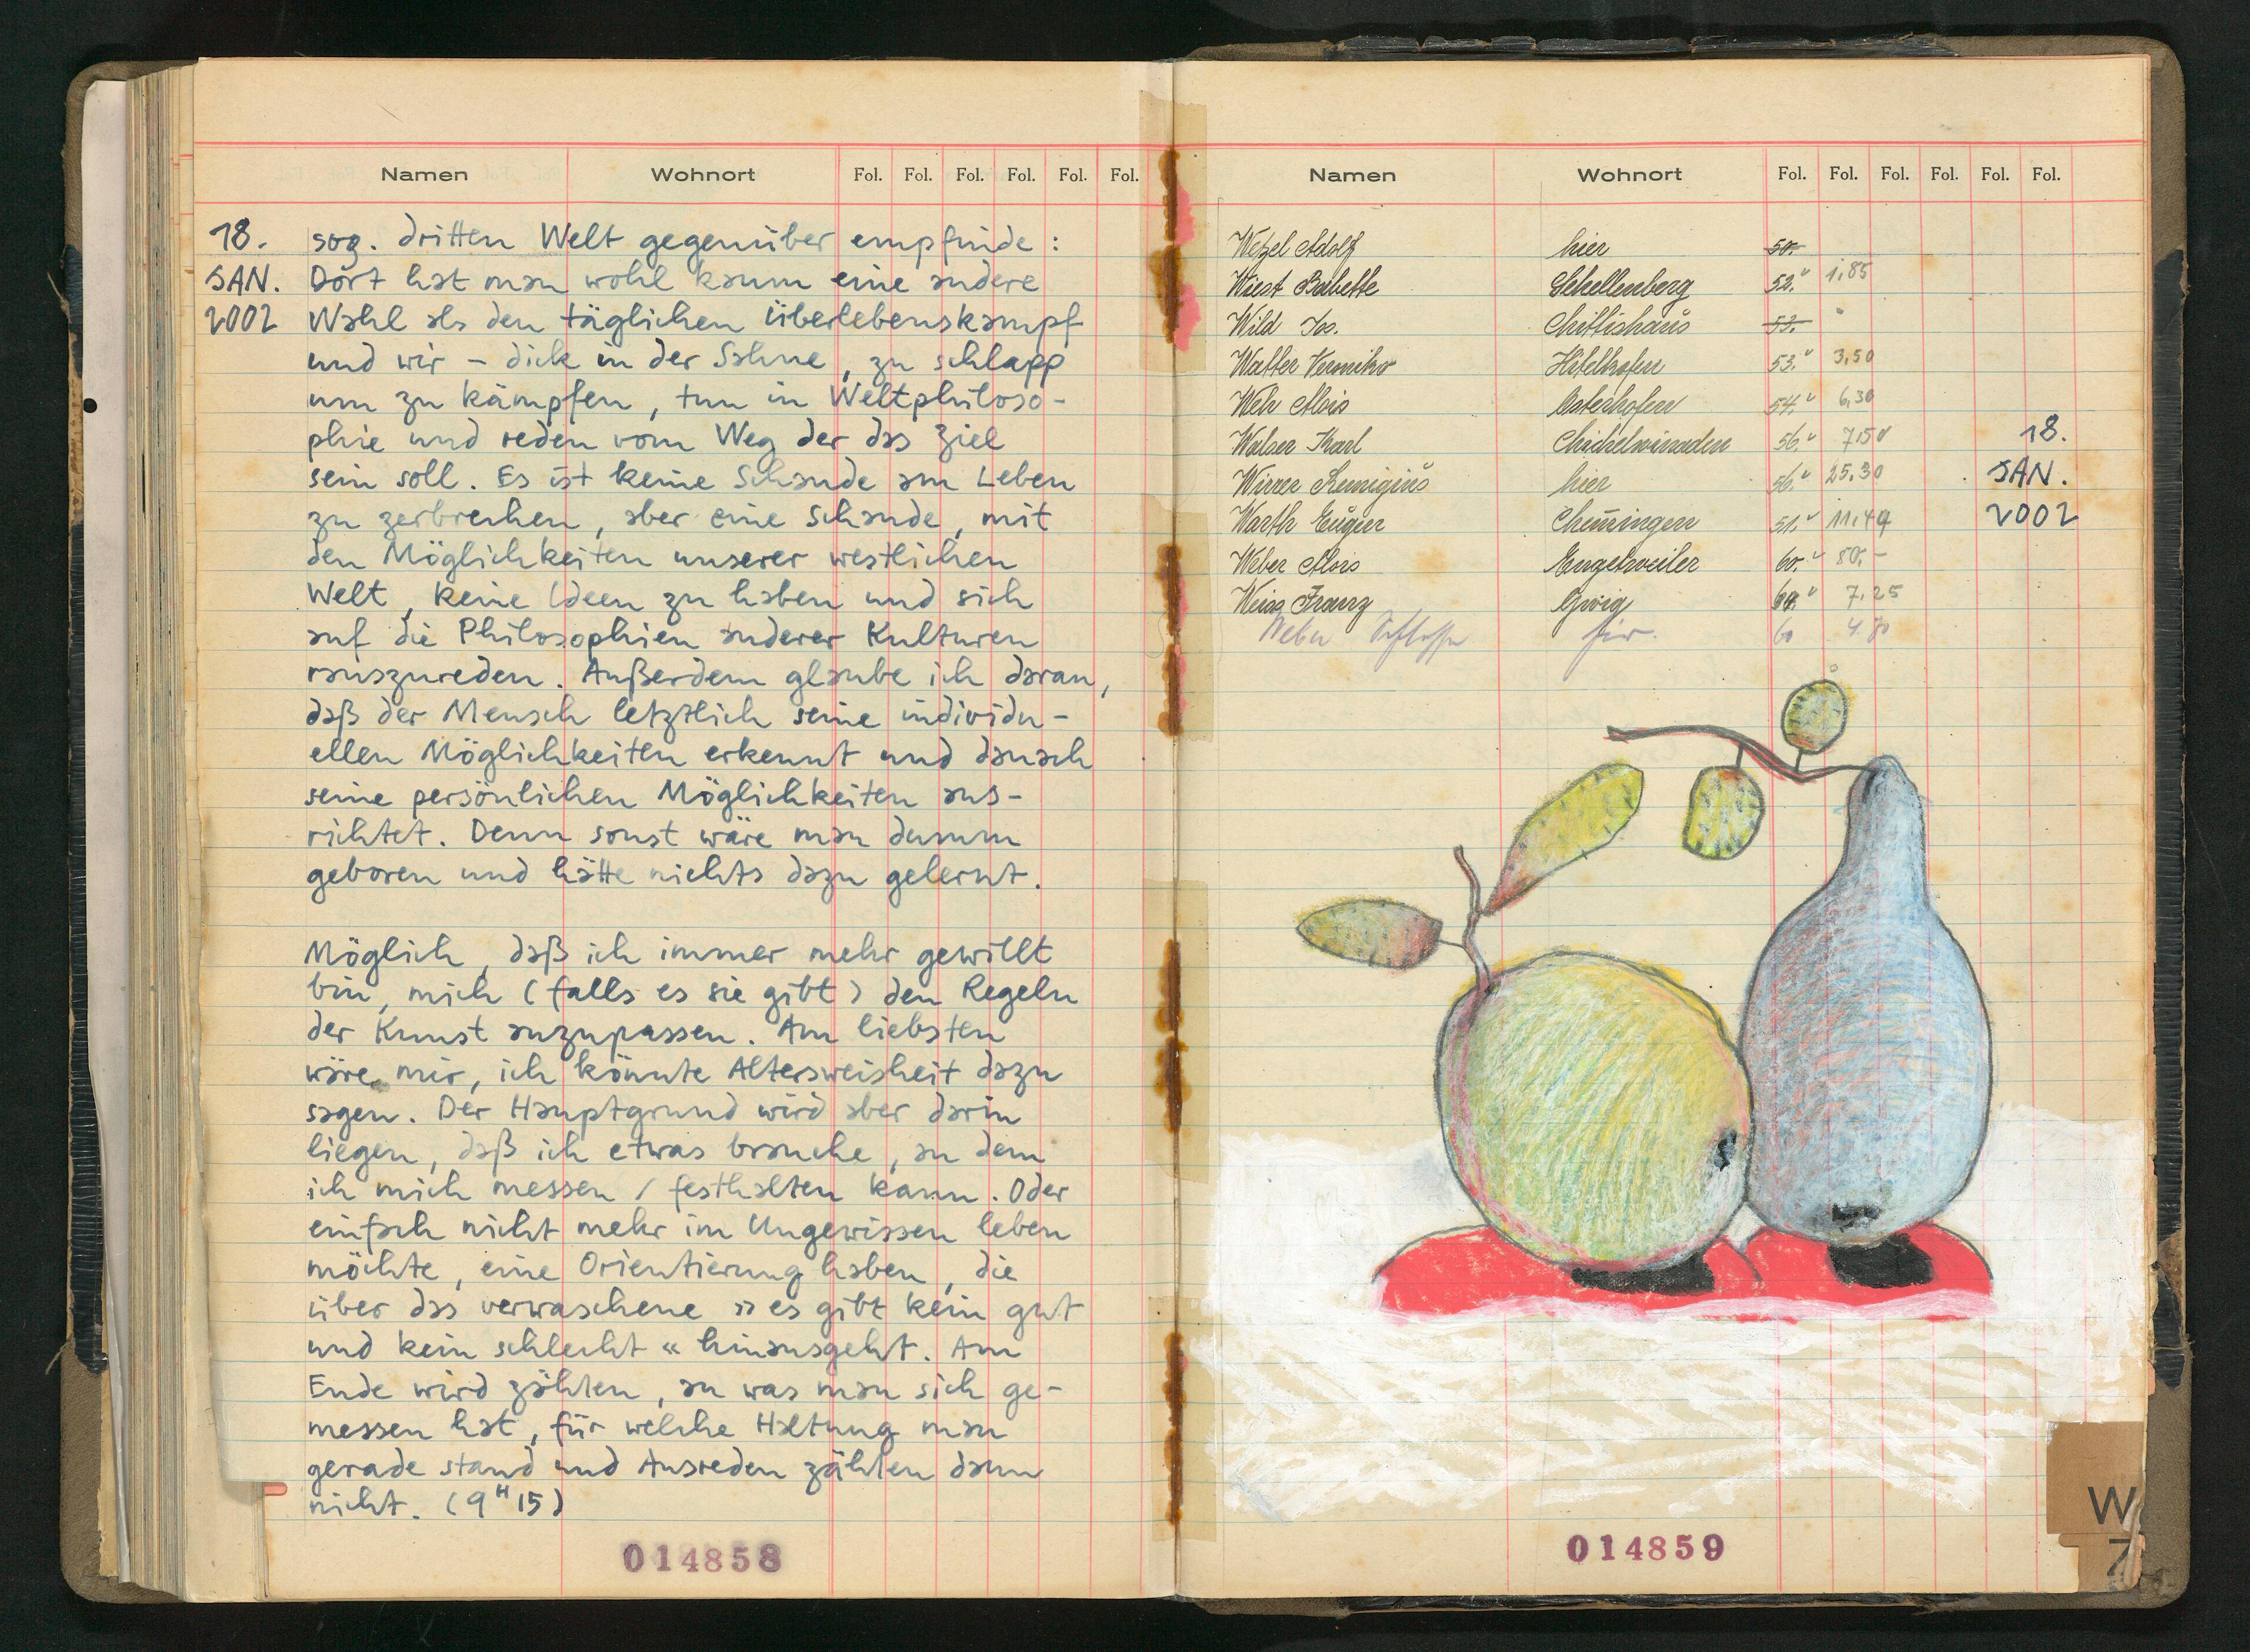 Namen Wohnort Fol. Fol. Fol. Fol. Fol. Fol.
18. soz. dritten Welt gegenüber empfinde :
JAN. Dort hat man wohl kaum eine andere
2002 Wahl als den täglichen Überlebenskampf
und wir – dick in der Sahne, zu schlapp
um zu kämpfen, tun in Weltphiloso-
phie und reden vom Weg der das Ziel
sein soll. Es ist keine Schande am Leben
zu zerbrechen, aber eine Schande, mit
den Möglichkeiten unserer westlichen
Welt, keine Ideen zu haben und sich
auf die Philosophien anderer Kulturen
rauszureden. Außerdem glaube ich daran,
daß der Mensch letztlich seine individu-
ellen Möglichkeiten erkennt und danach
seine persönlichen Möglichkeiten aus-
richtet. Denn sonst wäre man dumm
geboren und hätte nichts dazu gelernt.
Möglich, daß ich immer mehr gewillt
bin, mich (falls es sie gibt) den Regeln
der Kunst anzupassen. Am liebsten
wäre mir, ich könnte Altersweisheit dazu
sagen. Der Hauptgrund wird aber darin
liegen, daß ich etwas brauche, an dem
ich mich messen / festhalten kann. Oder
einfach nicht mehr im Ungewissen leben
möchte, eine Orientierung haben, die
über das verwaschene »es gibt kein gut
und kein schlecht« hinausgeht. Am
Ende wird zählen, an was man sich ge-
messen hat, für welche Haltung man
gerade stand und Ausreden zählen dann
nicht. (9 H 15)
014858
Namen Wohnort Fol. Fol. Fol. Fol. Fol. Fol.
Wetzel Adolf hier 50.
Wiest Babette Schellenberg 52. 1,85
Wild Jos. 53.
Walter 53. 3,50
Weh Alois Osterhofen 54. 6,30
Walser Karl Michelwinnaden 56. 7,50
18.
Wirrer Remigius hier 56. 25,30
JAN.
Warth Eugen 51. 11,49
2002
Weber Alois Engetweiler 60. 80,-
Weiss Franz Gwigg 7,25
Weber 60 4.80
W
Z
014859